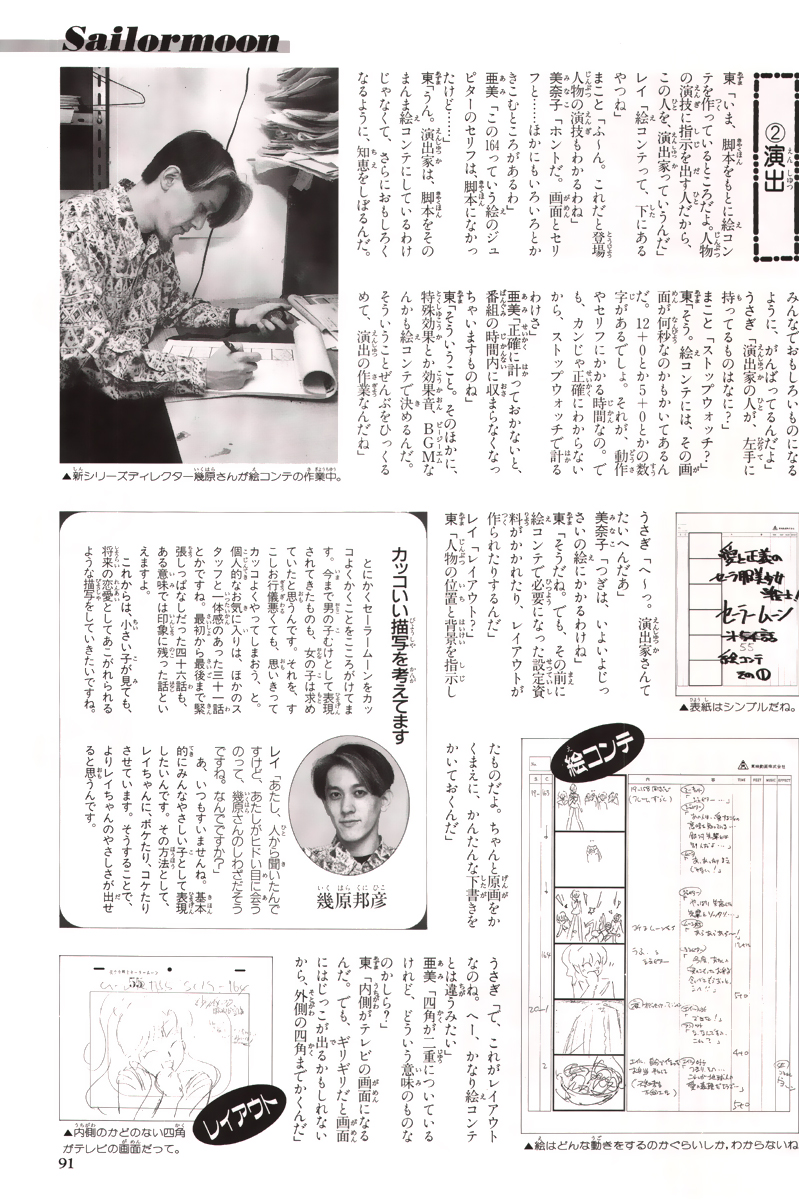 Sailormoon
②演出
東「いま、脚本をもとに絵コン
テを作っているところだよ。人物
の演技に指示を出す人だから、
この人を、演出家っていうんだ」
レイ「絵コンテって、下にある
やつね」
まこと「ふ〜ん。これだと登場
人物の演技もわかるわね」
美奈子「ホントだ。画面とセリ
フと……ほかにもいろいろとか
きこむところがあるわ」
亜美「この164っていう絵のジュ
ピターのセリフは、脚本になかっ
たけど……」
東「うん。演出家は、脚本をその
まんま絵コンテにしているわけ
じゃなくて、さらにおもしろく
なるように、知恵をしぼるんだ。
みんなでおもしろいものになる
ように、がんばってるんだよ」
うさぎ「演出家の人が、左手に
持ってるものはなに?」
まこと「ストップウォッチ?」
東「そう。絵コンテには、その画
面が何秒なのかもかいてあるん
だ。12+0とか5+0とかの数
字があるでしょ。それが、動作
やセリフにかかる時間なの。で
も、カンじゃ正確にわからない
から、ストップウォッチで計る
わけさ」
亜美「正確に計っておかないと、
番組の時間内に収まらなくなっ
ちゃいますものね」
東「そういうこと。そのほかに、
特殊効果とか効果音、BGMな
んかも絵コンテで決めるんだ。
そういうことぜんぶをひっくる
めて、演出の作業なんだね」
▲新シリーズディレクター幾原さんが絵コンテの作業中。
うさぎ「へ〜っ。演出家さんて
たいへんだあ」
美奈子「つぎは、いよいよじっ
さいの絵にかかるわけね」
東「そうだね。でも、その前に
絵コンテで必要になった設定資
料がかかれたり、レイアウトが
作られたりするんだ」
レイ「レイアウト?」
東「人物の位置と背景を指示し
たものだよ。ちゃんと原画をか
くまえに、かんたんな下書きを
かいておくんだ」
愛と正義の
セーラ服美少女
戦士!
セーラームーン
55
絵コンテ
その①
▲表紙はシンプルだね。
カッコいい描写を考えてます
とにかくセーラームーンをカッ
コよくかくことをこころがけてま
す。今まで男の子むけとして表現
されてきたものも、女の子は求め
ていたと思うんです。それを、す
こしお行儀悪くても、思いきって
カッコよくやってしまおう、と。
個人的なお気に入りは、ほかのス
タッフと一体感のあった三十一話
とかですね。最初から最後まで緊
張しっぱなしだった四十六話も、
ある意味では印象に残った話とい
えますよ。
これからは、小さい子が見ても、
将来の恋愛としてあこがれられる
ような描写をしていきたいですね。
幾原邦彦
レイ「あたし、人から聞いたんで
すけど、あたしがヒドい目に会う
のって、幾原さんのしわざだそう
ですね。なんでですか?」
あ、いつもすいませんね。基本
的にみんなやさしい子として表現
したいんです。その方法として、
レイちゃんに、ボケたり、コケたり
させています。そうすることで、
よりレイちゃんのやさしさが出せ
ると思うんです。
絵コンテ
東映動画株式会社
164
▲絵はどんな動きをするのかぐらいしか、わからないね
うさぎ「で、これがレイアウト
なのね。へー、かなり絵コンテ
とは違うみたい」
亜美「四角が二重についている
けれど、どういう意味のものな
のかしら?」
東「内側がテレビの画面になる
んだ。でも、ギリギリだと画面
にはじっこが出るかもしれない
から、外側の四角までかくんだ」
レイアウト
▲内側のかどのない四角
がテレビの画面だって。
91